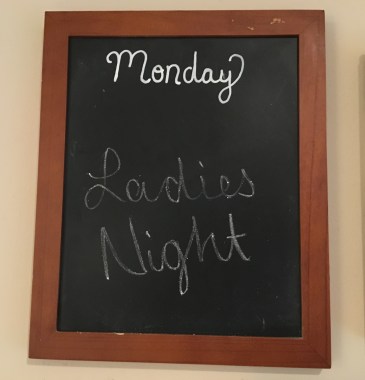 Monday
Ladies
Night